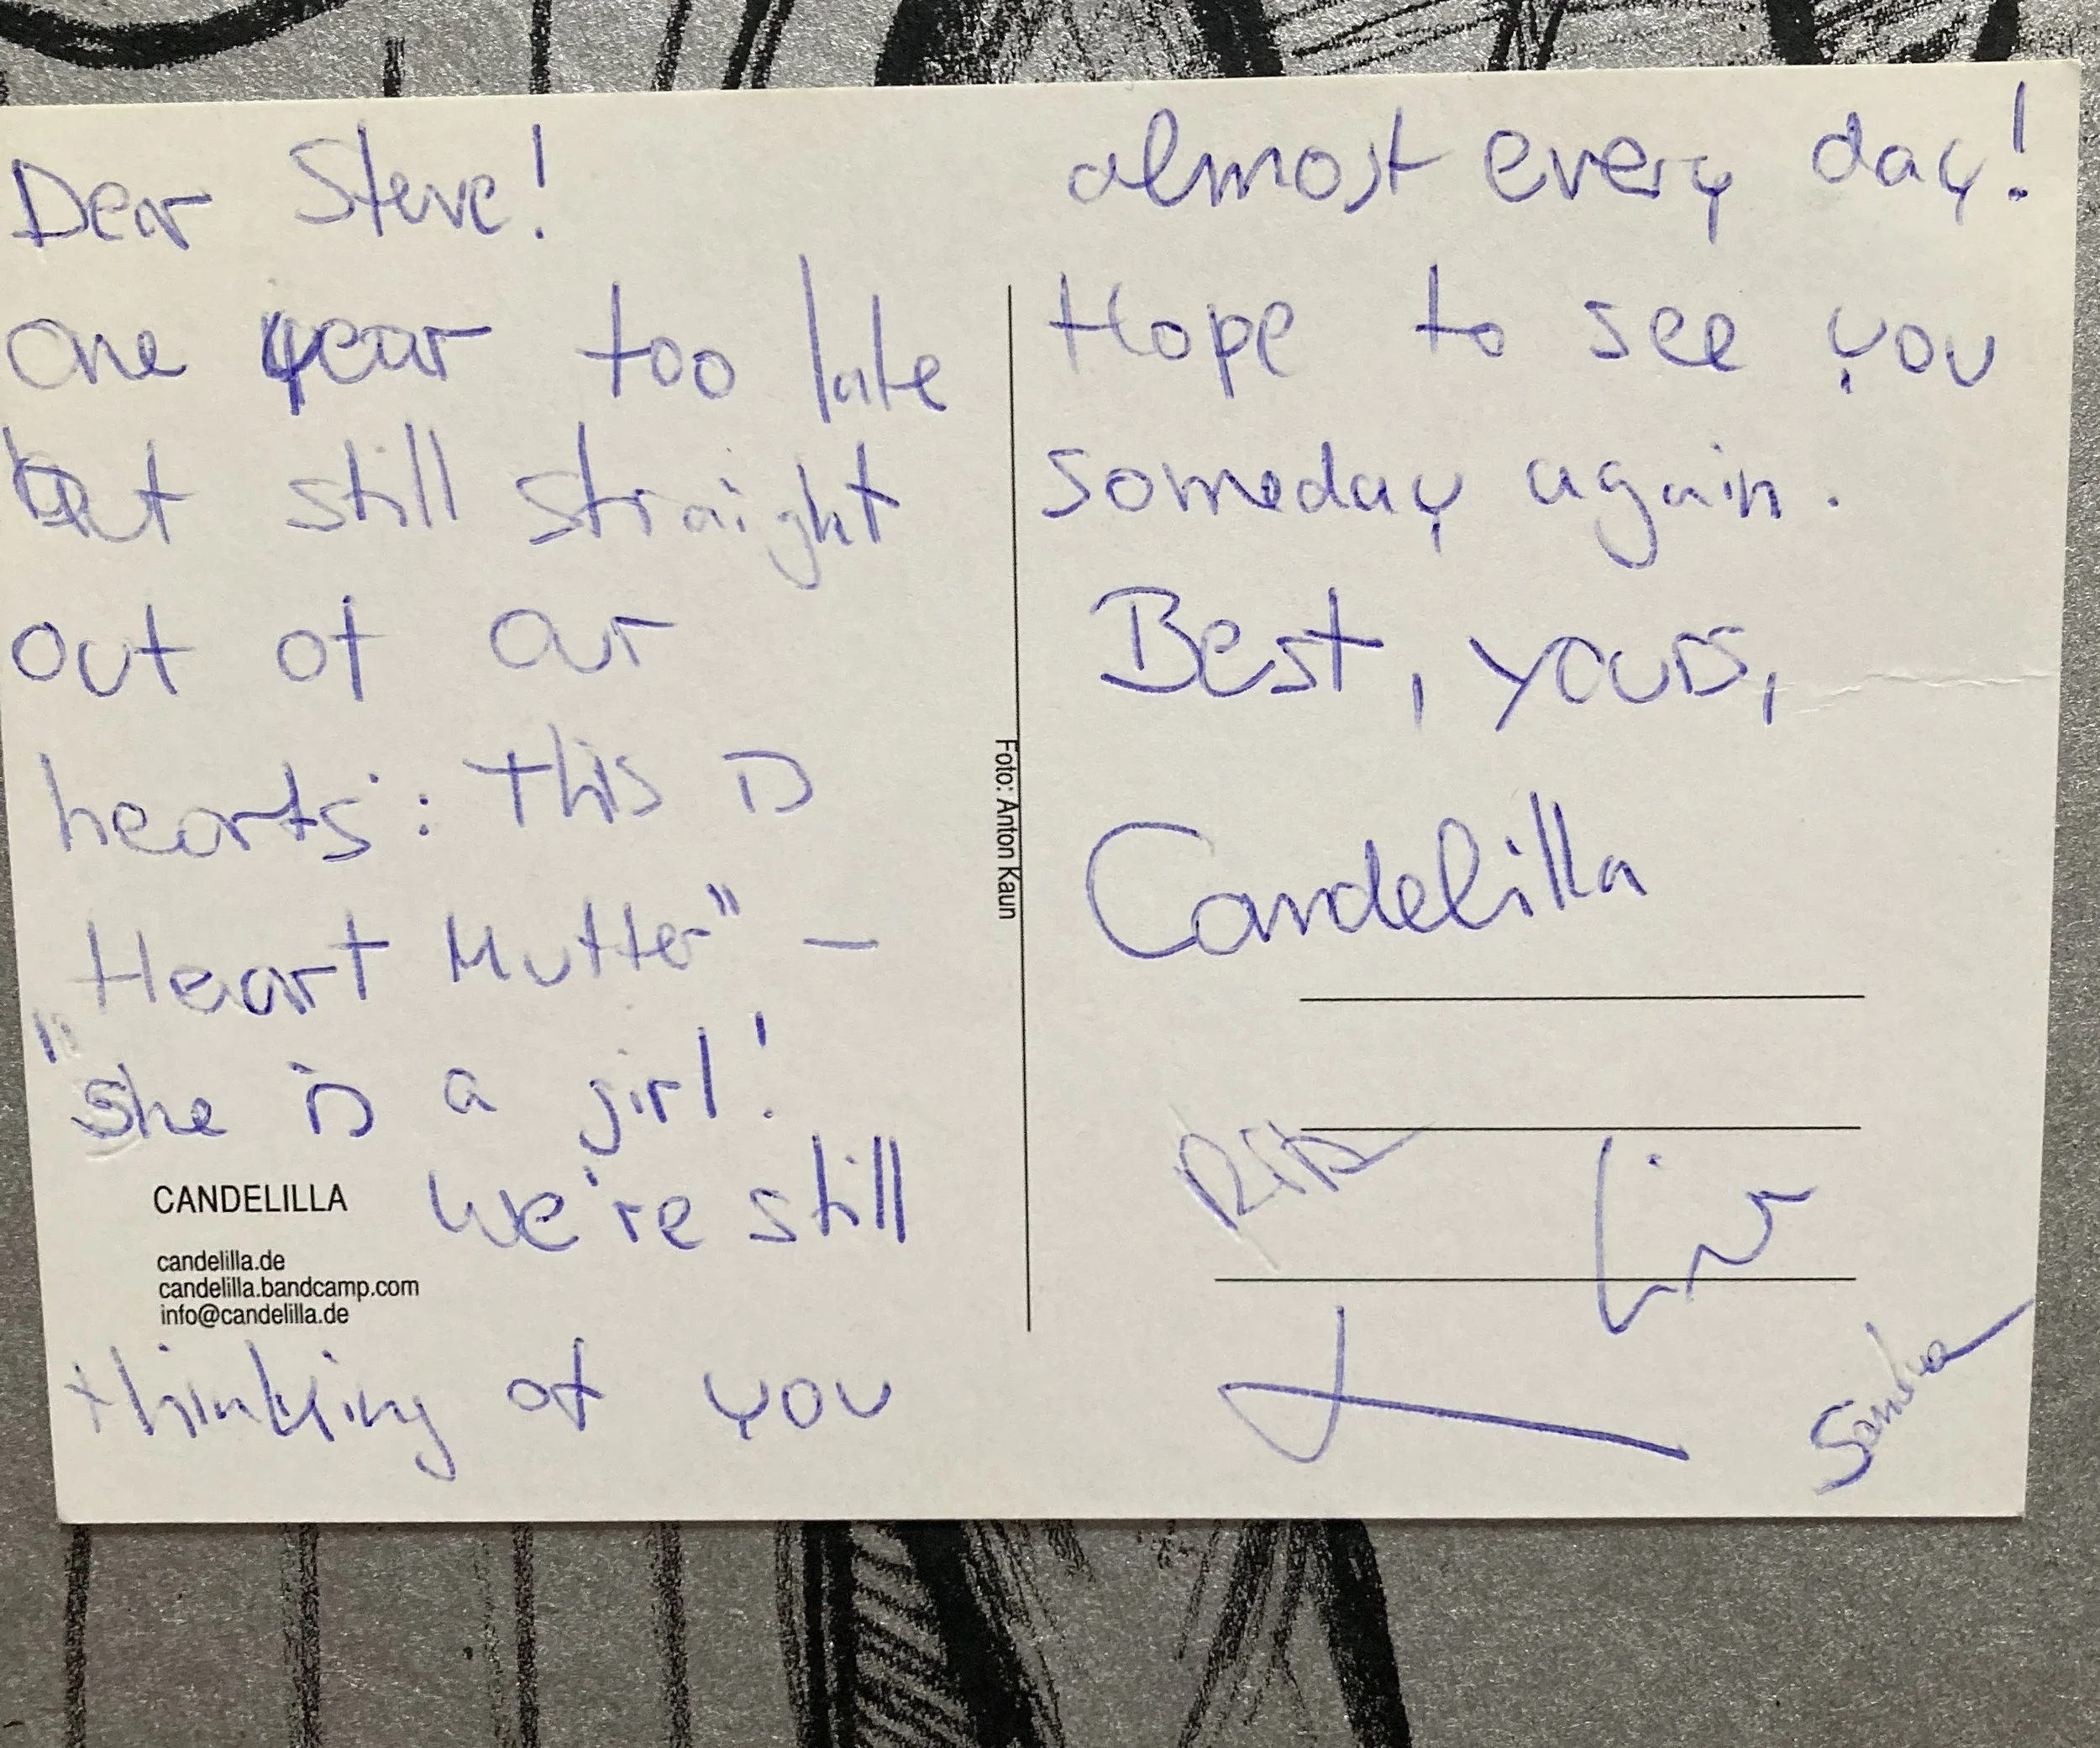 Dear Steve!
one year too late
but still straight
out of our
hearts: This is
"Heart Mutter" –
she is a girl!
We're still
CANDELILLA
candelilla.de
candelilla.bandcamp.com
info@candelilla.de
thinking of you
Foto: Anton Kaun
almost every day!
Hope to see you
someday again.
Best, yours,
Candelilla
Rita
Lina
Sandra